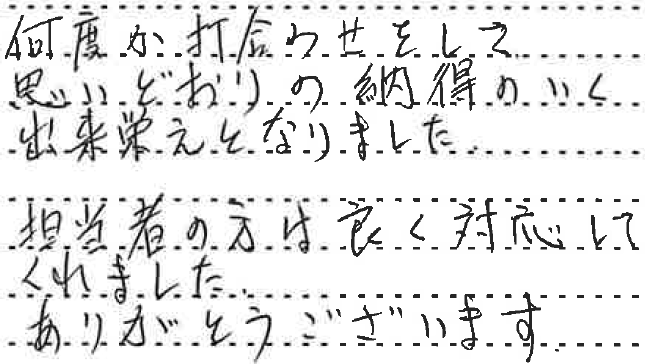 何度か打合わせをして
思いどおりの納得のいく
出来栄えとなりました.
担当者の方は良く対応して
くれました.
ありがとうございます.